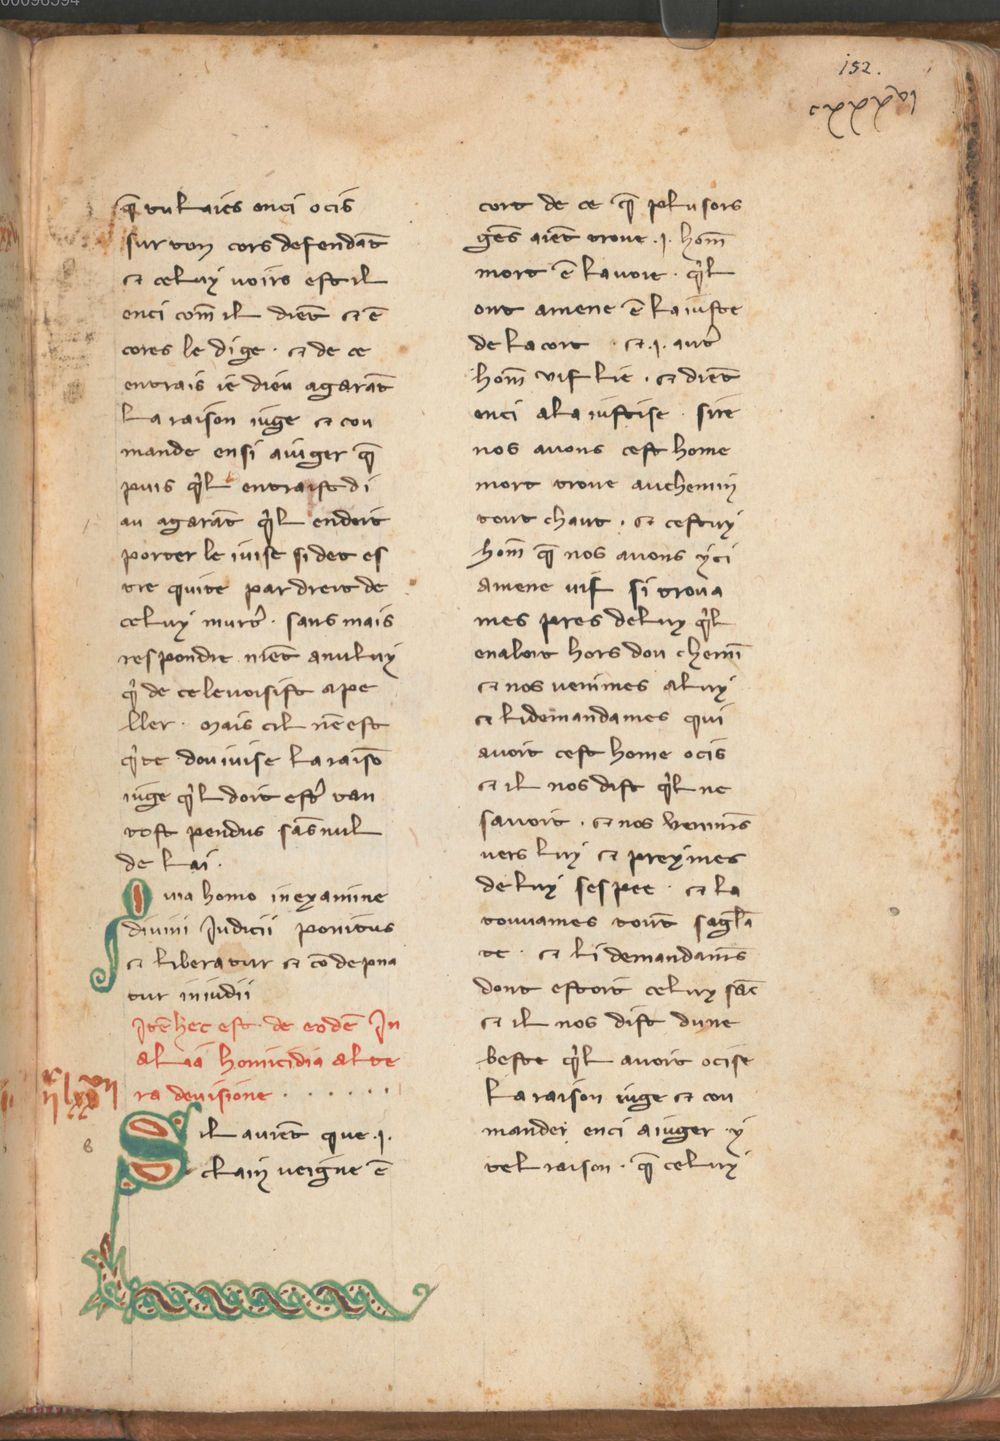 152.
cxxxxvi
q̃ tu l aies enci ocis
sur ton cors defendãt
et celuy uoirs est il
enci com̃ il diẽt et ẽ
cores le dige · et de ce
entrais ie dieu agarãt
La raison iuge et con
mande ensi aiuger q̃
puis q̉l entraist di
au agarãt q̉l endoit
porter le iuise si det es
tre quite par dreit de
celuy murt̉ · sans mais
respondre niẽt anuluy
q̉ de ce le uoisist ape
ller · Mais cil nẽ est
q̉te dou iuise La raisõ
iuge q̉l doit est̉ tan
tost pendus sãs nul
delai ·
Quia homo in examine
diuini Iudicii ponitus
et liberatur et cõdepna
tur in iudii
Itẽ hec est · de eodẽ In
alia homicidia alte
ra deuisione · · · · · ·
Sil auiẽt que · i ·
clain ueigne ẽ
cort de ce q̃ plusors
gẽs aiẽt troue · i · hom̃
mort ẽ la uoie · q̉l
ont amene ẽ la iuste
de la cort · et · i · aut̉
hom̃ uif lie · et diẽt
enci ala iustise · sire
nos auons cest home
mort troue au chemin
tout chaut · et cestuy
hom̃ q̃ nos auons yci
amene uif si troua
mes pres deluy q̉l
enaloit hors dou chemĩ
et nos uenimes aluy
et li demandames qui
auoit cest home ocis
et il nos dist q̉l ne
sauoit · et nos uenim̃s
uers luy et preymes
de luy sespee · et la
touuames toute sagl̃ã
te · et li demandam̃s
dont estoit celuy sãc
et il nos dist dune
beste q̉l auoit ocise
La raison iuge et con
mander enci aiuger y
tel raison · q̃ celuy